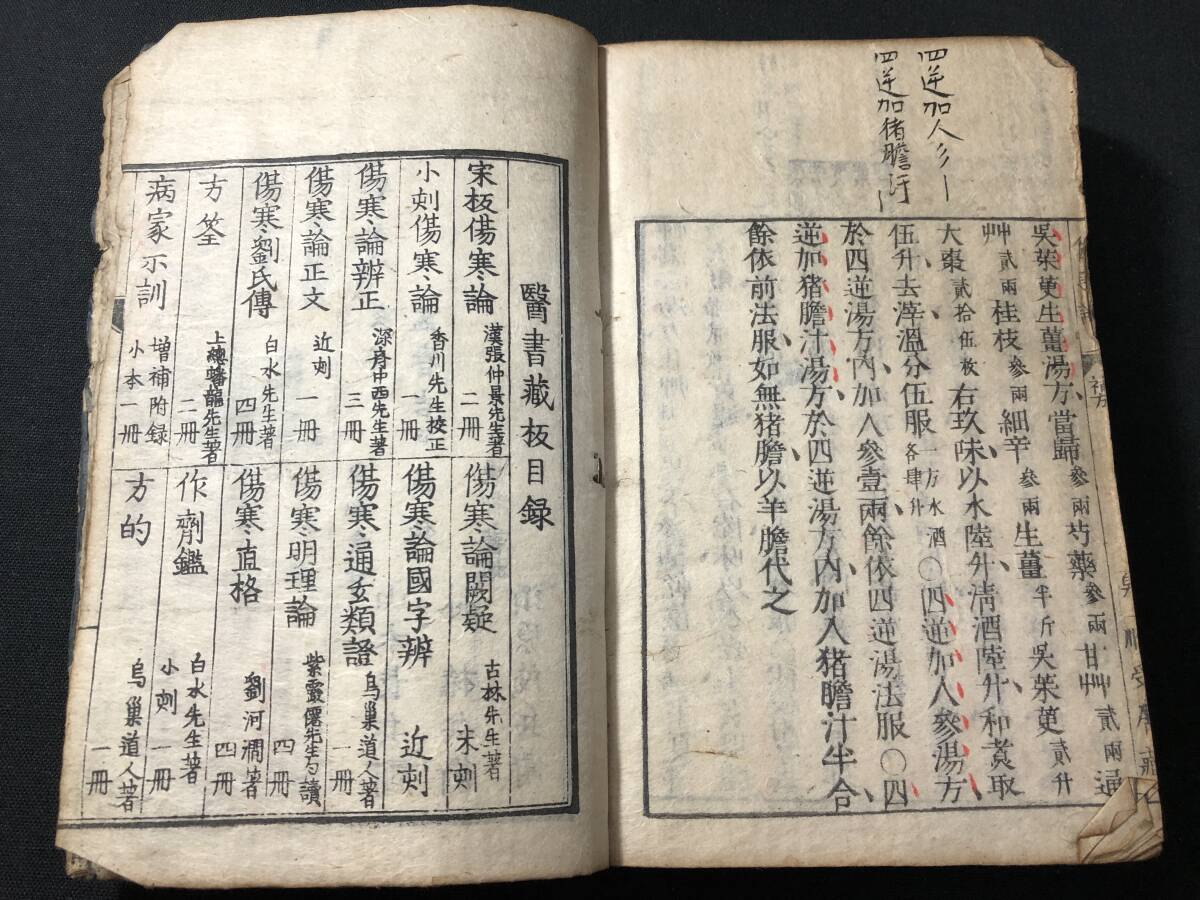 四逆加人彡
四逆加猪膽汁
呉茱萸生薑湯方當歸參兩芍藥參兩甘艸貳兩通
艸貳兩桂枝參兩細辛參兩生薑半斤呉茱萸貳升
大棗貳拾伍枚右玖味以水陸升清酒陸升和煮取
伍升去滓溫分伍服一方水酒各肆升○四逆加人參湯方
於四逆湯方內加人參壹兩餘依四逆湯法服○四
逆加猪膽汁湯方於四逆湯方內加入猪膽汁半合
餘依前法服如無猪膽以羊膽代之
醫書藏板目録
宋板傷寒論 漢張仲景先生著 二冊
傷寒論闕疑 古林先生著 末刻
小刻傷寒論 香川先生校正 一冊
傷寒論國字辨 近刻
傷寒論辨正 深齊中西先生著 三冊
傷寒通玄類證 烏巢道人著 一冊
傷寒論正文 近刻 一冊
傷寒明理論 紫靈僊先生句讀 四冊
傷寒劉氏傳 白水先生著 四冊
傷寒直格 劉河澗著 四冊
方筌 上總蟠龍先生著 二冊
作劑鑑 白水先生著 小刻 一冊
病家示訓 增補附録 小本一冊
方的 烏巢道人著 一冊